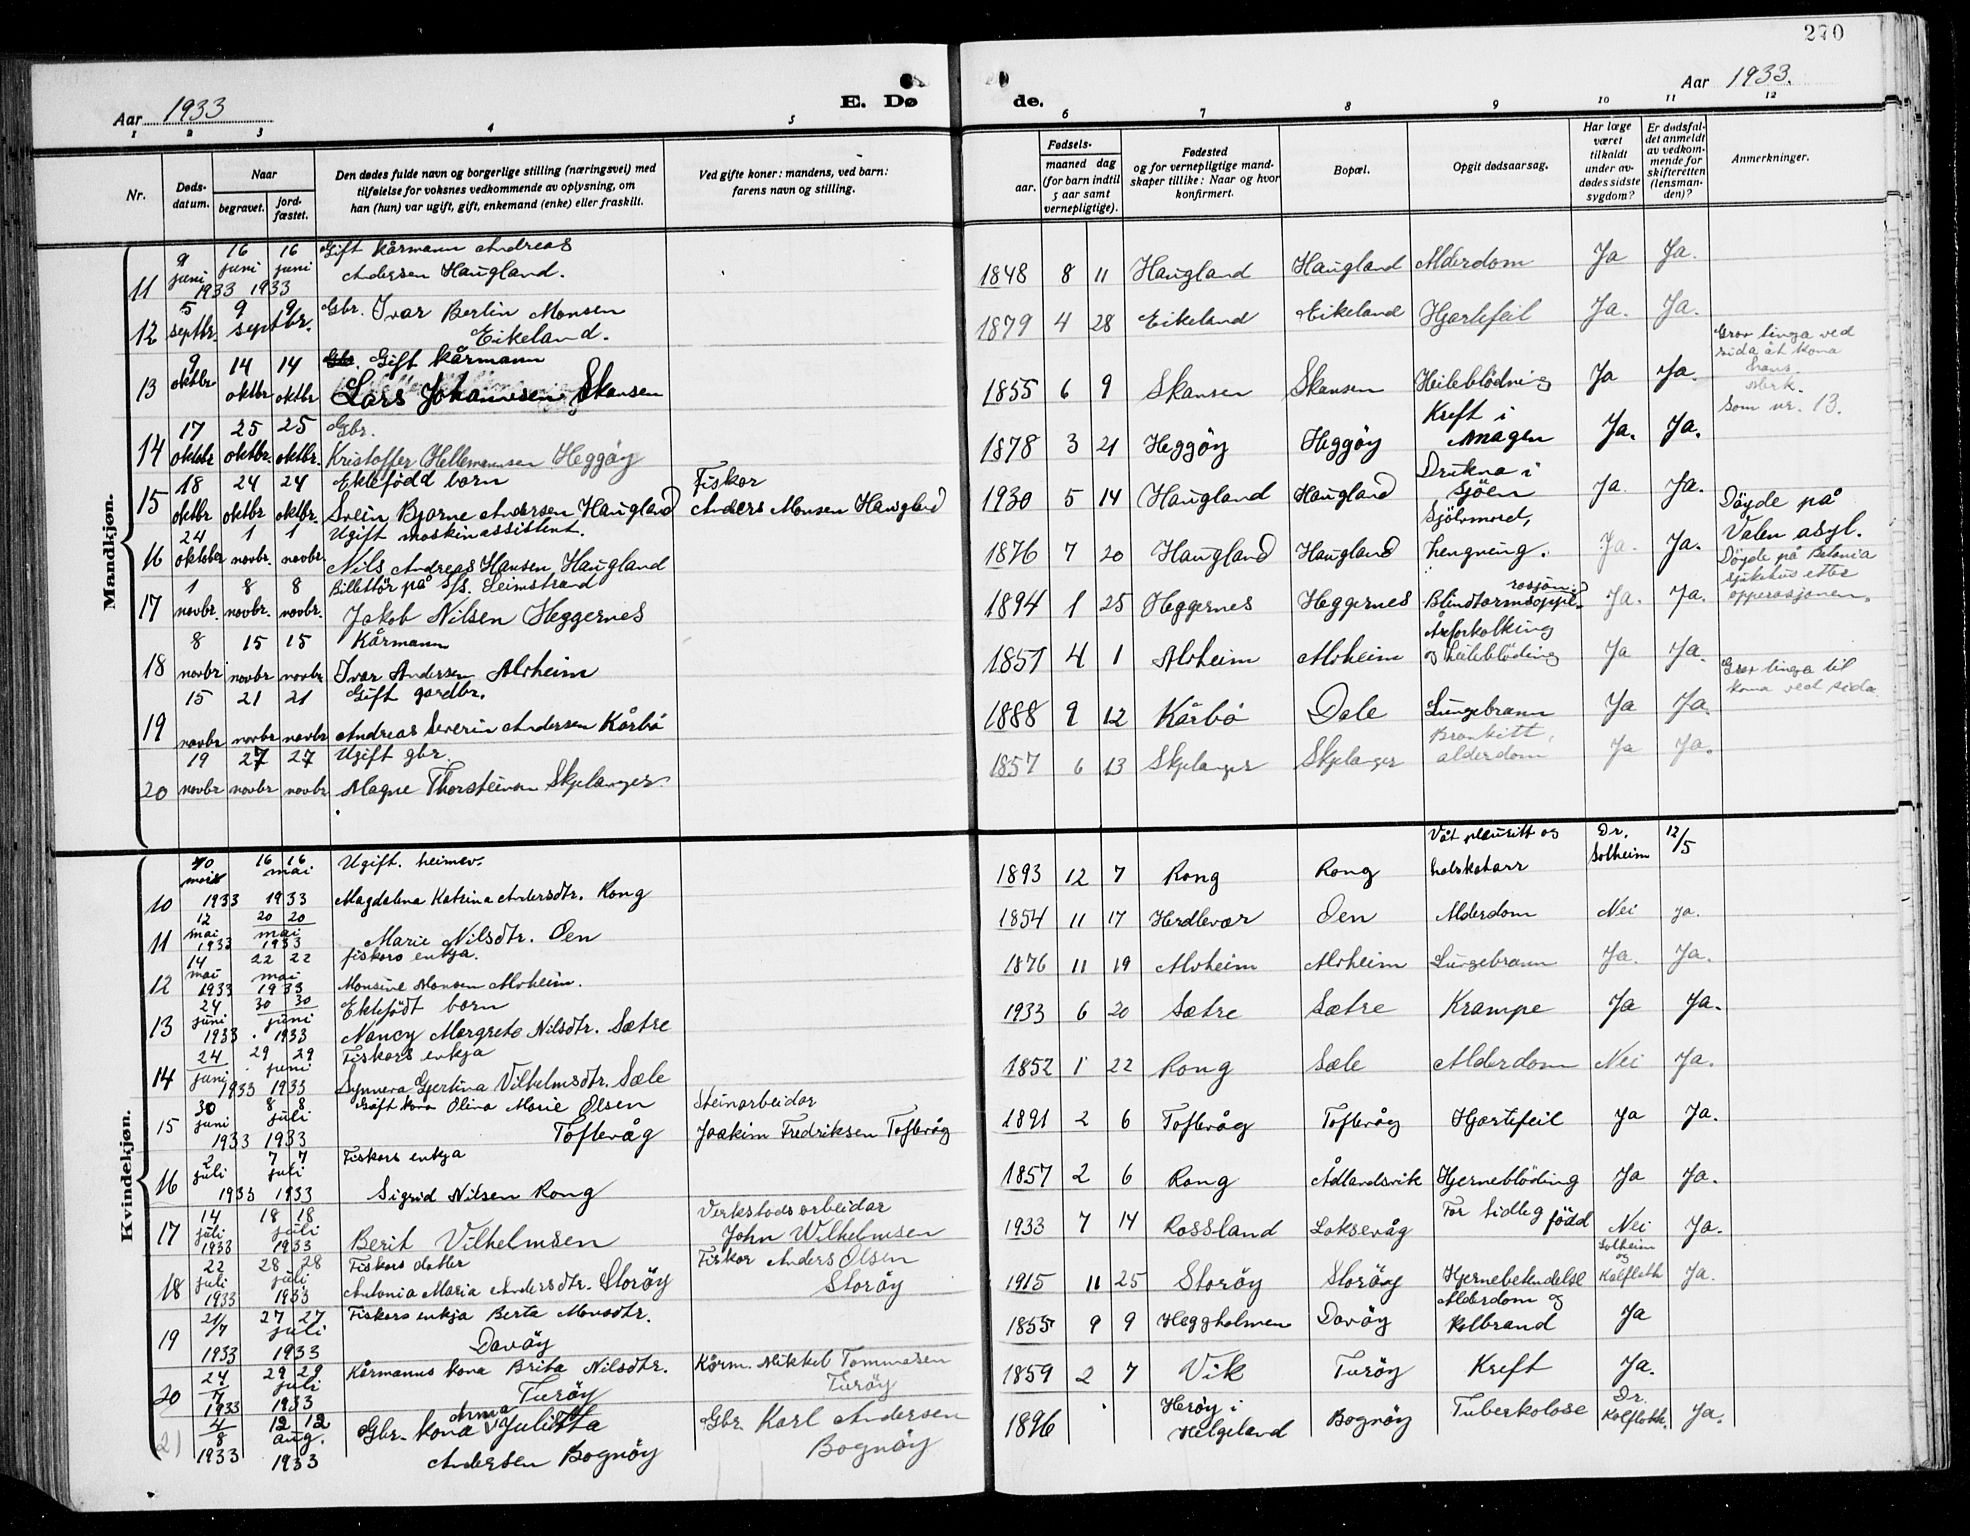 270
Aar 1933
E. Dø
de.
Aar 1933.
1 2 3 4 5 6 7 8 9 10 11 12
Nr.
Døds-datum.
Naar
begravet.
jord-fæstet.
Den dødes fulde navn og borgerlige stilling (næringsvei) med
tilføielse for voksnes vedkommende av oplysning, om
han (hun) var ugift, gift, enkemand (enke) eller fraskilt.
Ved gifte koner: mandens, ved barn:
farens navn og stilling.
Fødsels-
aar.
maaned dag
(for barn indtil
5 aar samt
vernepligtige).
Fødested
og for vernepligtige mand-
skaper tillike: Naar og hvor
konfirmert.
Bopæl.
Opgit dødsaarsag.
Har læge
været
tilkaldt
under av-
dødes sidste
sygdom?
Er dødsfal-
det anmeldt
av vedkom-
mende for
skifteretten
(lensman-
den)?
Anmerkninger.
Mandkjøn.
11 9 juni 1933 16 juni 1933 16 juni Gift kårmann Andreas
Andersen Haugland. 1848 8 11 Haugland Haugland Alderdom Ja Ja.
12 5 septbr. 9 9 septbr. Gbr. Ivar Berlin Monsen
Eikeland. 1879 4 28 Eikeland Eikeland Hjartefeil Ja. Ja.
13 9 oktbr 14 oktbr 14 oktbr Gbr. Gift kårmann
Lars Johannesen Skansen 1855 6 9 Skansen Skansen Heileblødning Ja Ja. Grov linga ved
sida åt kona
hans.
Merk.
Som nr. 13.
14 17 oktobr 25 oktbr. 25 oktbr. Gbr.
Kristoffer Hellemansen Heggøy 1878 3 21 Heggøy Heggøy Kreft i
magen Ja. Ja.
15 18 oktbr 24 oktbr 24 oktbr. Ektefødd born
Svein Bjarne Andersen Haugland Fiskar
Anders Monsen Haugland 1930 5 14 Haugland Haugland Drukna i
sjøen Ja Ja.
16 24 oktober 1 novbr. 1 novbr. Ugift maskinassistent.
Nils Andreas Hansen Haugland 1876 7 20 Haugland Haugland Sjølvmord,
hengning. Ja. Ja. Døyde på
Valen asyl.
17 1 novbr. 8 novbr. 8 novbr. Billettør på s/s. Leimstrand
Jakob Nilsen Heggernes 1894 1 25 Heggernes Heggernes Blindtarmsoppe-
rasjon Ja. Ja. Døyde på Betania
sjukehus etter
opperasjonen.
18 8 novbr 15 novbr 15 novbr Kårmann
Ivar Andersen Alvheim 1851 4 1 Alvheim Alvheim Åreforkalking
og heilebløding Ja Ja.
19 15 novbr 21 novbr 21 novbr Gift gardbr.
Andreas Severin Andersen Kårbø 1888 9 12 Kårbø Dale Lungebrann Ja Ja. Grov linga til
kona ved sida.
20 19 novbr 27 novbr 27 novbr Ugift gbr.
Magne Thorsteinsen Skjelanger 1857 6 13 Skjelanger Skjelanger Bronkitt,
alderdom Ja Ja.
Kvindekjøn.
10 10 mai 1933 16 16 mai 1933 Ugift. heimev.
Magdalena Katrina Andersdtr. Rong 1893 12 7 Rong Rong Våt pleuritt og
halskatarr Dr.
Solheim 12/5
11 12 mai 1933 20 20 mai 1933 Marie Nilsdtr. Oen 1854 11 17 Herdlevær Oen Alderdom Nei ja.
12 14 mai 1933 22 22 mai 1933 fiskars enkja.
Monsine Monsen Alvheim. 1876 11 19 Alvheim Alvheim Lungebrann Ja. Ja.
13 24 juni 1933 30 30 juni 1933 Ektefødt born
Nancy Margrete Nilsdtr. Sætre 1933 6 20 Sætre Sætre Krampe Ja Ja.
14 24 juni 1933 29 29 juni 1933 Fiskars enkja
Synneva Gjertina Vilhelmsdtr. Sæle 1852 1 22 Rong Sæle Alderdom Nei Ja.
15 30 juni 1933 8 8 juli 1933 Gift kona Olina Marie Olsen
Toftevåg Steinarbeidar
Joakim Fredriksen Toftevåg 1891 2 6 Toftevåg Toftevåg Hjartefeil Ja Ja.
16 2 juli 1933 7 7 juli 1933 Fiskars enkja
Sigrid Nilsen Rong 1857 2 6 Rong Ådlandsvik Hjerneblöding Ja Ja.
17 14 juli 1933 18 18 juli 1933 Berit Vilhelmsen Verkstadsarbeidar
John Wilhelmsen 1933 7 14 RosslandLoksevåg For tidleg född Nei Ja.
18 22 juli 1933 28 28 juli 1933 Fiskars dotter
Antonia Maria Andersdtr. Storøy Fiskar Anders Olsen
Storøy 1915 11 25 Storøy Storøy Hjernebetendelse Solheim
og
Kalfloth Ja.
19 21/7 1933 27 27 juli 1933 Fiskars enkja Berta Monsdtr.
Davøy 1855 9 9 Heggholmen Davøy Alderdom og
kolbrand Ja
20 24/7 1933 29 29 juli 1933 Kårmanns kona Brita Nilsdtr.
Turøy Kårm. Mikkel Tommasen
Turøy 1859 2 7 Vik Turøy Kreft Ja.
21 4/8 1933 12 12 aug. 1933 Gbr. kona Anna Julitta
Andersen Bognøy Gbr. Karl Andersen
Bognøy 1896 Herøy i
Helgeland Bognøy Tuberkolose Dr.
Kalfloth. Ja.